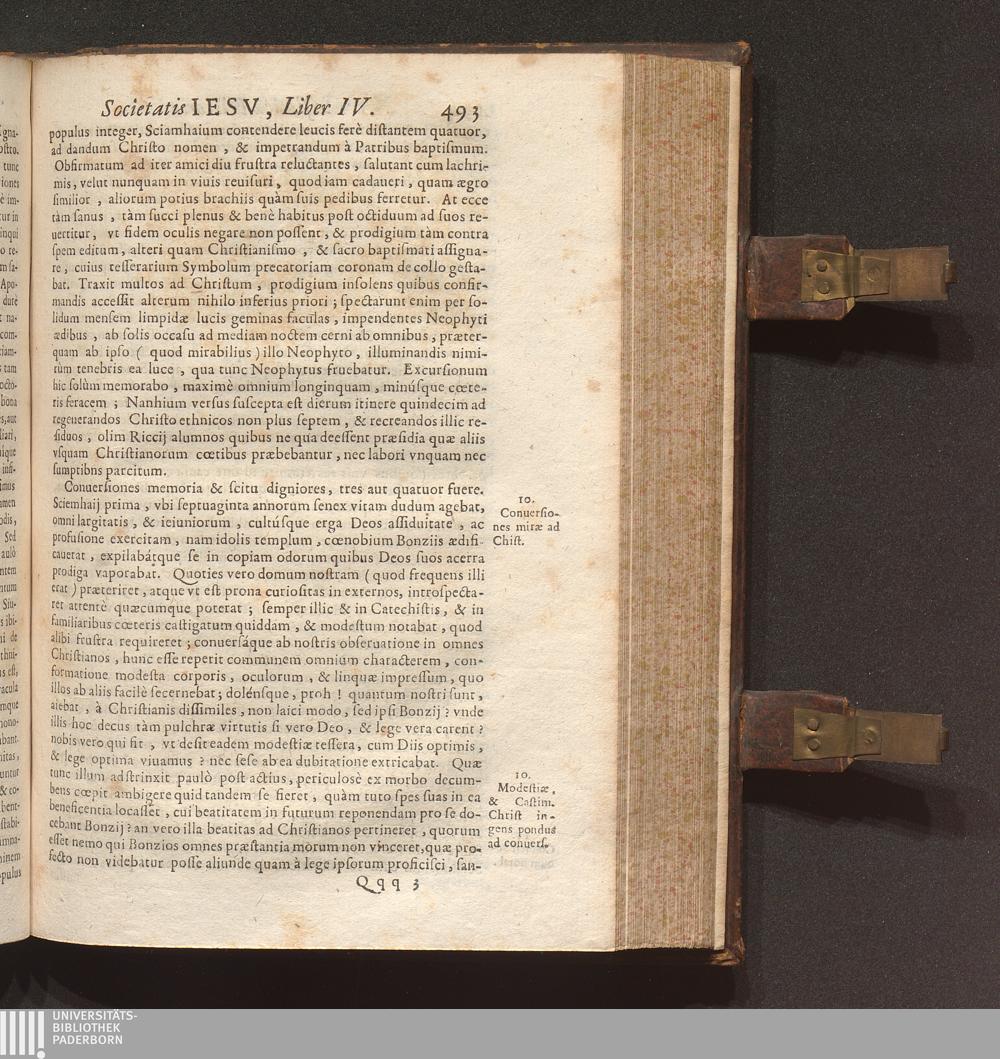 Societatis IESV, Liber IV. 493
populus integer, Sciamhaium contendere leucis ferè distantem quatuor,
ad dandum Christo nomen , & impetrandum à Patribus baptismum.
Obfirmatum ad iter amici diu frustra reluctantes , salutant cum lachri-
mis, velut nunquam in viuis reuisuri , quod iam cadaueri , quam ægro
similior , aliorum potius brachiis quàm suis pedibus ferretur. At ecce
tàm sanus , tàm succi plenus & benè habitus post octiduum ad suos re-
uertitur, vt fidem oculis negare non possent, & prodigium tàm contra
spem editum, alteri quam Christianismo , & sacro baptismati assigna-
re, cuius tesserarium Symbolum precatoriam coronam de collo gesta-
bat. Traxit multos ad Christum , prodigium insolens quibus confir-
mandis accessit alterum nihilo inferius priori ; spectarunt enim per so-
lidum mensem limpidæ lucis geminas faculas , impendentes Neophyti
ædibus , ab solis occasu ad mediam noctem cerni ab omnibus , præter-
quam ab ipso ( quod mirabilius ) illo Neophyto , illuminandis nimi-
rùm tenebris ea luce , qua tunc Neophytus fruebatur. Excursionum
hic solùm memorabo , maximè omnium longinquam , minúsque cœte-
ris feracem ; Nanhium versus suscepta est dierum itinere quindecim ad
regenerandos Christo ethnicos non plus septem , & recreandos illic re-
siduos , olim Riccij alumnos quibus ne quia deessent præsidia quæ aliis
vsquam Christianorum cœtibus præbebantur , nec labori vnquam nec
sumptibns parcitum.
Conuersiones memoria & scitu digniores, tres aut quatuor fuere.
Sciemhaij prima , vbi septuaginta annorum senex vitam dudum agebat,
omni largitatis , & ieiuniorum , cultúsque erga Deos assiduitate , ac
profusione exercitam , nam idolis templum , cœnobium Bonziis ædifi-
cauerat , expilabátque se in copiam odorum quibus Deos suos acerra
prodiga vaporabat. Quoties vero domum nostram ( quod frequens illi
erat ) præteriret , atque vt est prona curiositas in externos, introspecta-
ret attentè quæcumque poterat ; semper illic & in Catechistis , & in
familiaribus cœteris castigatum quiddam , & modestum notabat , quod
alibi frustra requireret ; conuersáque ab nostris obseruatione in omnes
Christianos , hunc esse reperit communem omnium characterem , con-
formatione modesta corporis , oculorum , & linquæ impressum , quo
illos ab aliis facilè secernebat ; dolénsque , proh ! quantum nostri sunt,
aiebat , à Christianis dissimiles , non laici modo , sed ipsi Bonzij ? vnde
illis hoc decus tàm pulchræ virtutis si vero Deo , & lege vera carent ?
nobis vero qui fit , vt desit eadem modestiæ tessera, cum Diis optimis ,
& lege optima viuamus ? nec sese ab ea dubitatione extricabat. Quæ
tunc illum adstrinxit paulò post actius, periculosè ex morbo decum-
bens cœpit ambigere quid tandem se fieret , quàm tuto spes suas in ea
beneficentia locasset , cui beatitatem in futurum reponendam pro se do-
cebant Bonzij ? an vero illa beatitas ad Christianos pertineret , quorum
esset nemo qui Bonzios omnes præstantia morum non vinceret, quæ pro-
fecto non videbatur posse aliunde quam à lege ipsorum proficisci , san-
Qqq 3
10.
Conuersio-
nes miræ ad
Christ.
10.
Modestiæ,
& Castim.
Christ in-
gens pondus
ad conuers.
UNIVERSITÄTS-
BIBLIOTHEK
PADERBORN